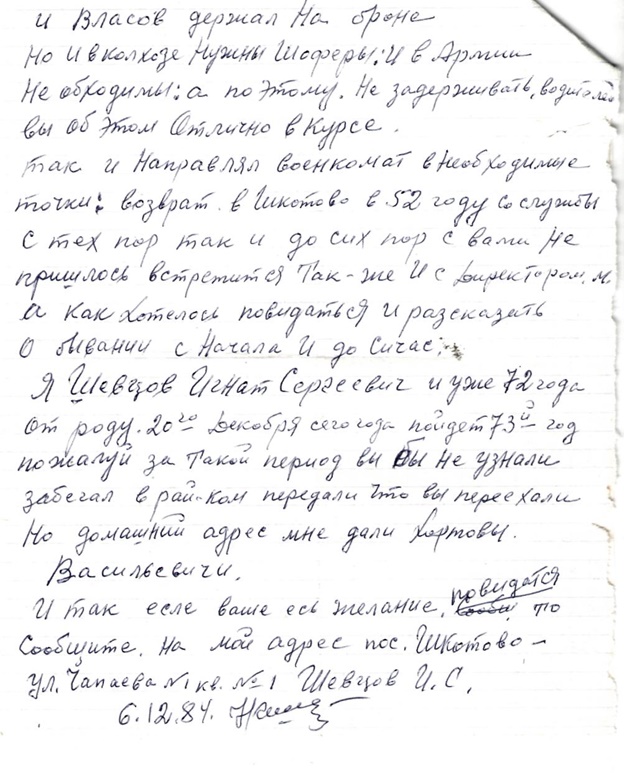 и Власов держал На броне
Но и в колхозе Нужны Шоферы: и в Армии
Необходимы: а поэтому. Не задерживать, водителей
вы об этом Отлично в Курсе.
так и Направлял военкомат в необходимые
точки: возврат. в Шкотово в 52 году со службы
с тех пор так и до сих пор с вами Не
пришлось встретится Так-же И с Директором. М.
а как хотелось повидаться и разсказать
о бывании с Начала И до Сичас:
Я Шевцов Игнат Сергеевич и уже 72 года
от роду. 20го Декабря сего года пойдет 73й год
пожалуй за Такой период вы бы Не узнали
забегал в рай-ком передали что вы переехали
Но домашний адрес мне дали Хортовы.
Васильевичи.
И так есле ваше есь желание. повидатся то
Сообщите. На мой адрес пос. Шкотово-
ул. Чапаева №1 кв. №1 Шевцов И.С.
6.12.84.